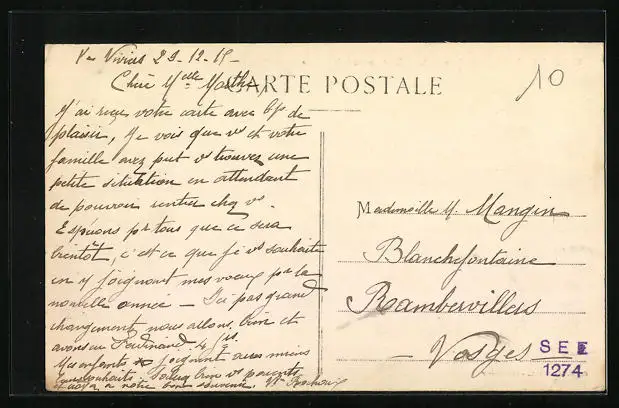 29-12-15-
Chère Melle Marthe,
CARTE POSTALE
10
J'ai reçu votre carte avec bp de
plaisir, Je vois que vs et votre
famille avez put vs trouver une
petite situtation en attendant
de pouvoir rentrer chez vs.
Espérons pr tous que ce sera
bientôt, c'est ce que je vs souhaite
en y joignant mes voeux pr la
nouvelle année - Ici pas grand
changement nous allons bien et
avons eu Ferdinand 4 jrs.
Mes enfants se joignent aux miens
bon souvenir.
Mademoiselle M. Mangin
Blanchefontaine
Rambervillers
- Vosges
SEE
1274